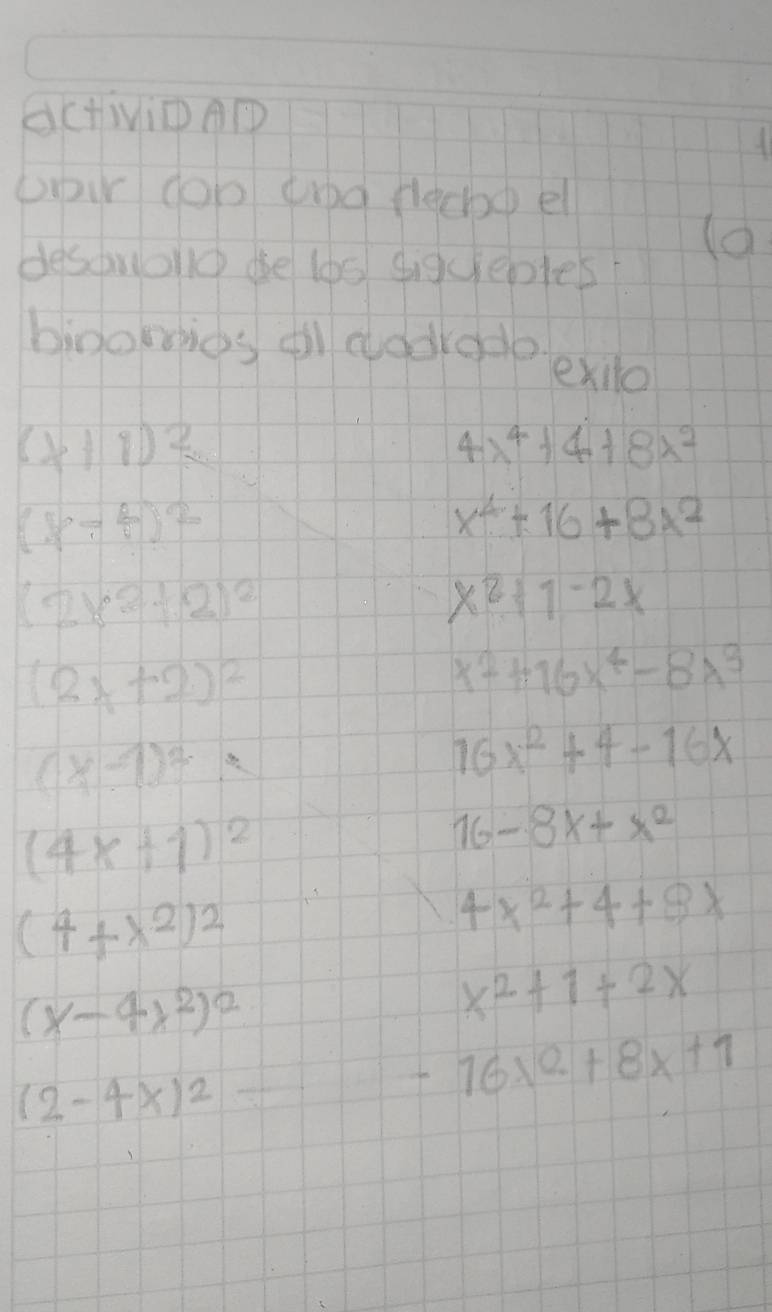 actiViDAD
unir con una flecha el
desarrollo de los siguientes
binomios al cuadrado.
exito
(x+1)² 4x⁴+4+8x²
(x-4)² x⁴+16+8x²
(2x²+2)² x²+1-2x
(2x+2)² x²+16x⁴-8x³
(x-1)² 16x²+4-16x
(4x+1)² 16-8x+x²
(4+x²)² 4x²+4+8x
(x-4x²)² x²+1+2x
(2-4x)² - 16x²+8x+1